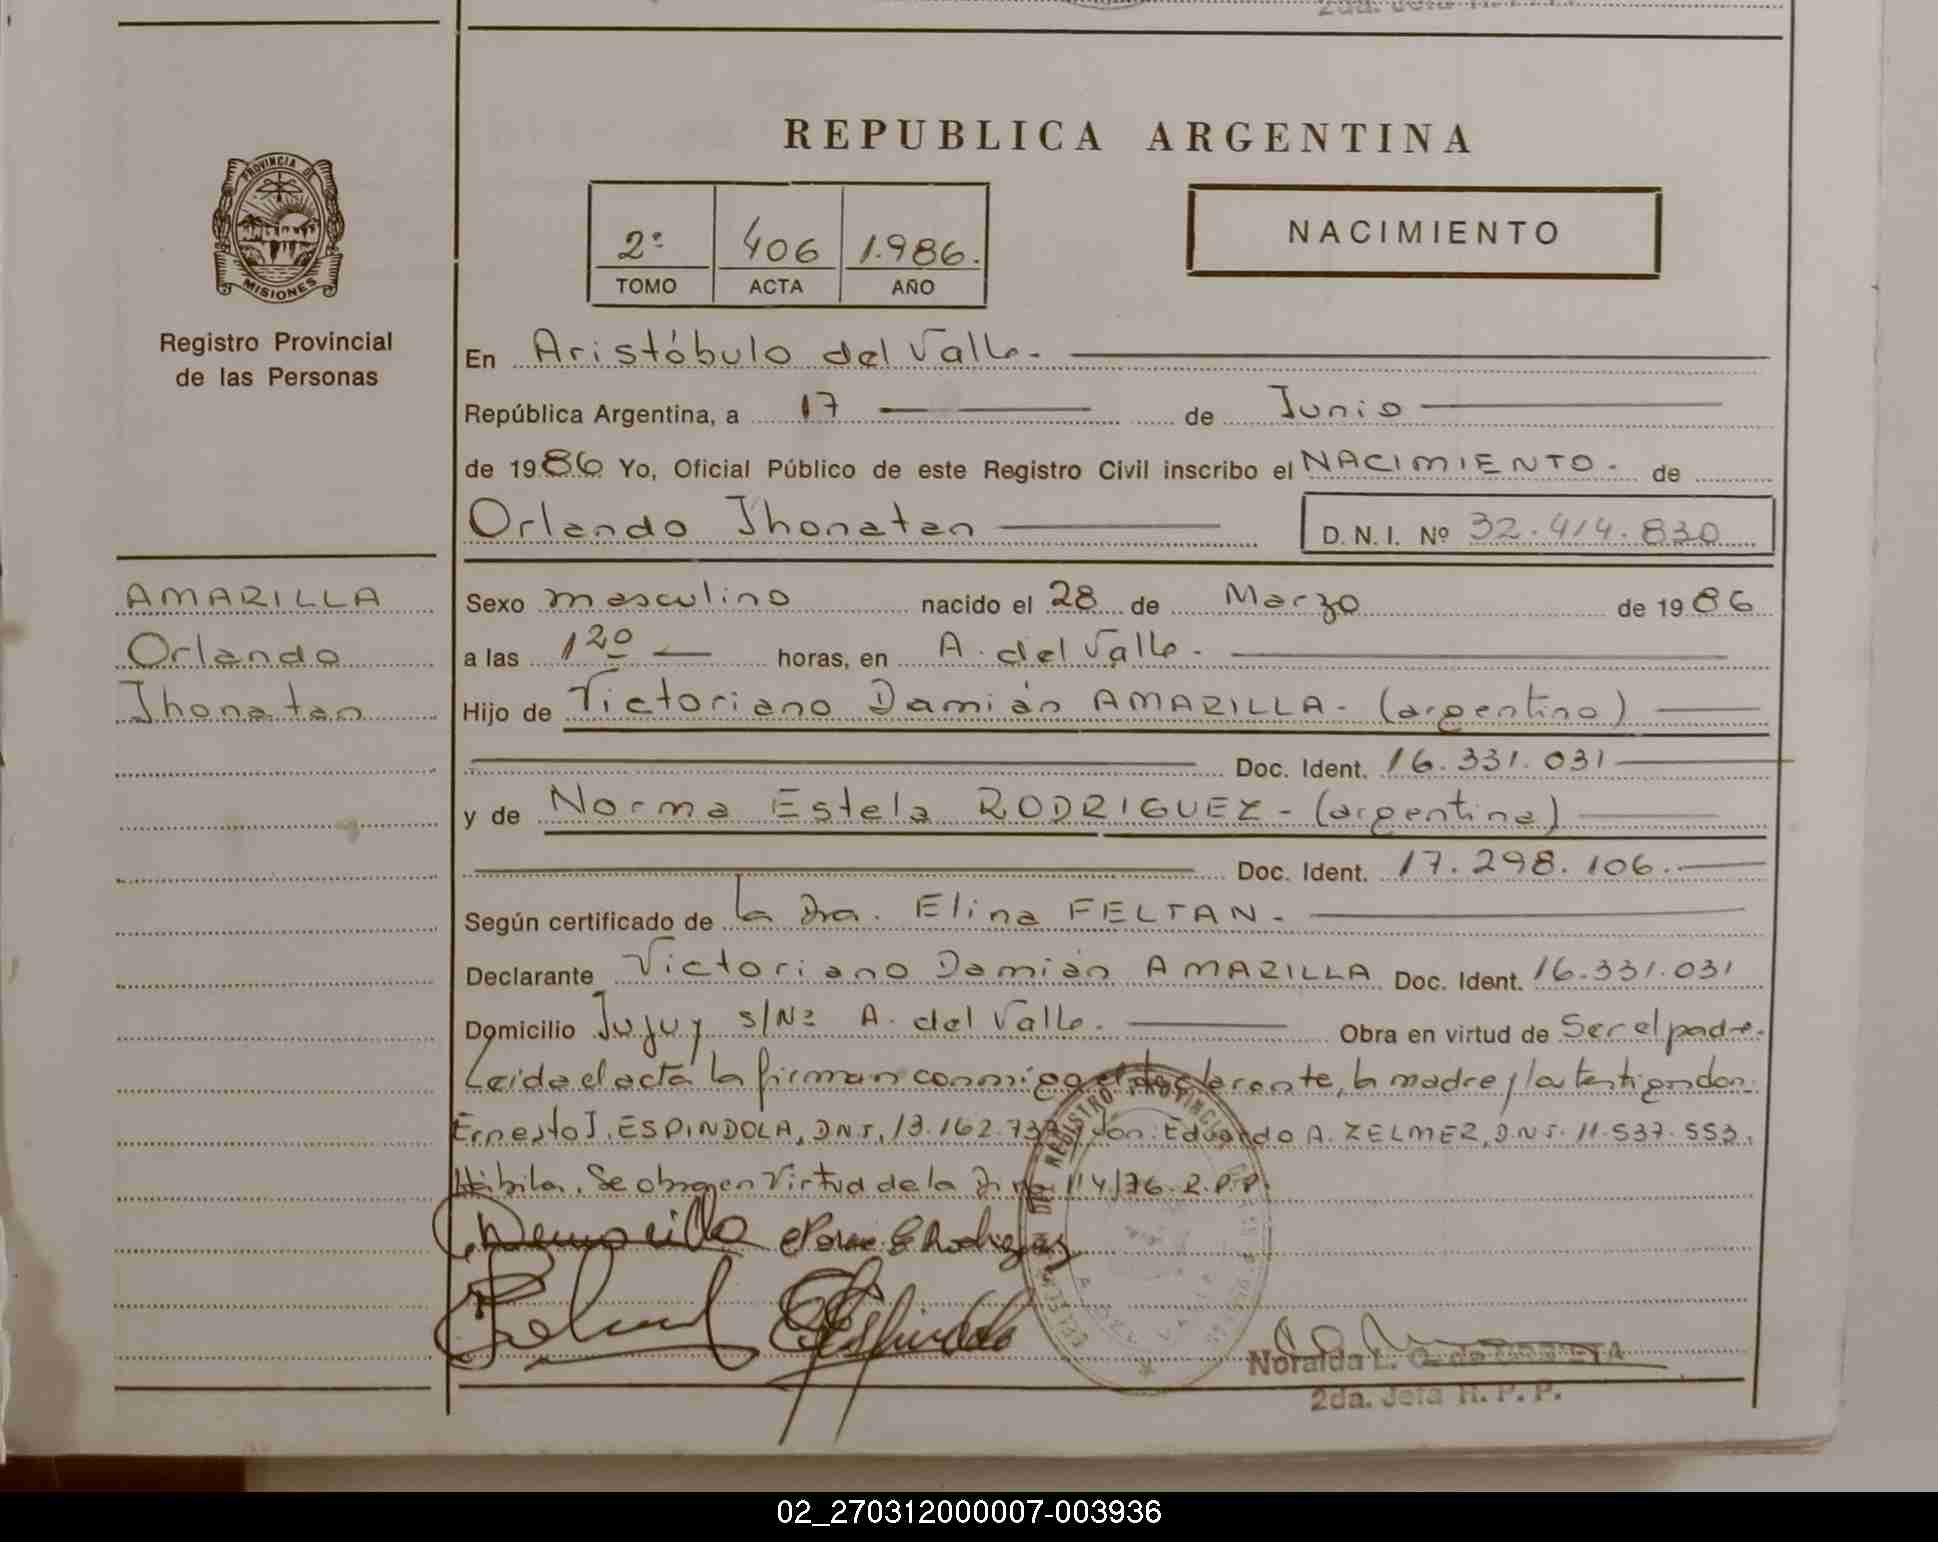 REPUBLICA ARGENTINA
PROVINCIA DE
MISIONES
Registro Provincial
de las Personas
2º 406 1.986.
TOMO ACTA AÑO
NACIMIENTO
En Aristóbulo del Valle.
República Argentina, a 17 de Junio
de 1986 Yo, Oficial Público de este Registro Civil inscribo el NACIMIENTO. de
Orlando Jhonatan D.N.I. Nº 32.414.830
AMARILLA
Orlando
Jhonatan
Sexo masculino nacido el 28 de Marzo de 1986
a las 12º horas, en A. del Valle.
Hijo de Victoriano Damián AMARILLA- (argentino)
Doc. Ident. 16.331.031
y de Norma Estela RODRIGUEZ- (argentina)
Doc. Ident. 17.298.106.
Según certificado de la Dra. Elina FELTAN.
Declarante Victoriano Damián AMARILLA Doc. Ident. 16.331.031
Domicilio Jujuy s/Nº A. del Valle. Obra en virtud de Ser el padre.
Leida el acta la firman conmigo el declarante, la madre y los testigos don
Ernesto J. ESPINDOLA, DNI. 13.162. don Eduardo A. ZELMER, D.N.I. 11.537.553.
Hábiles. Se obra en Virtud de la 114/76. R.P.P.
2da. Jefa R. P. P.
02_270312000007-003936